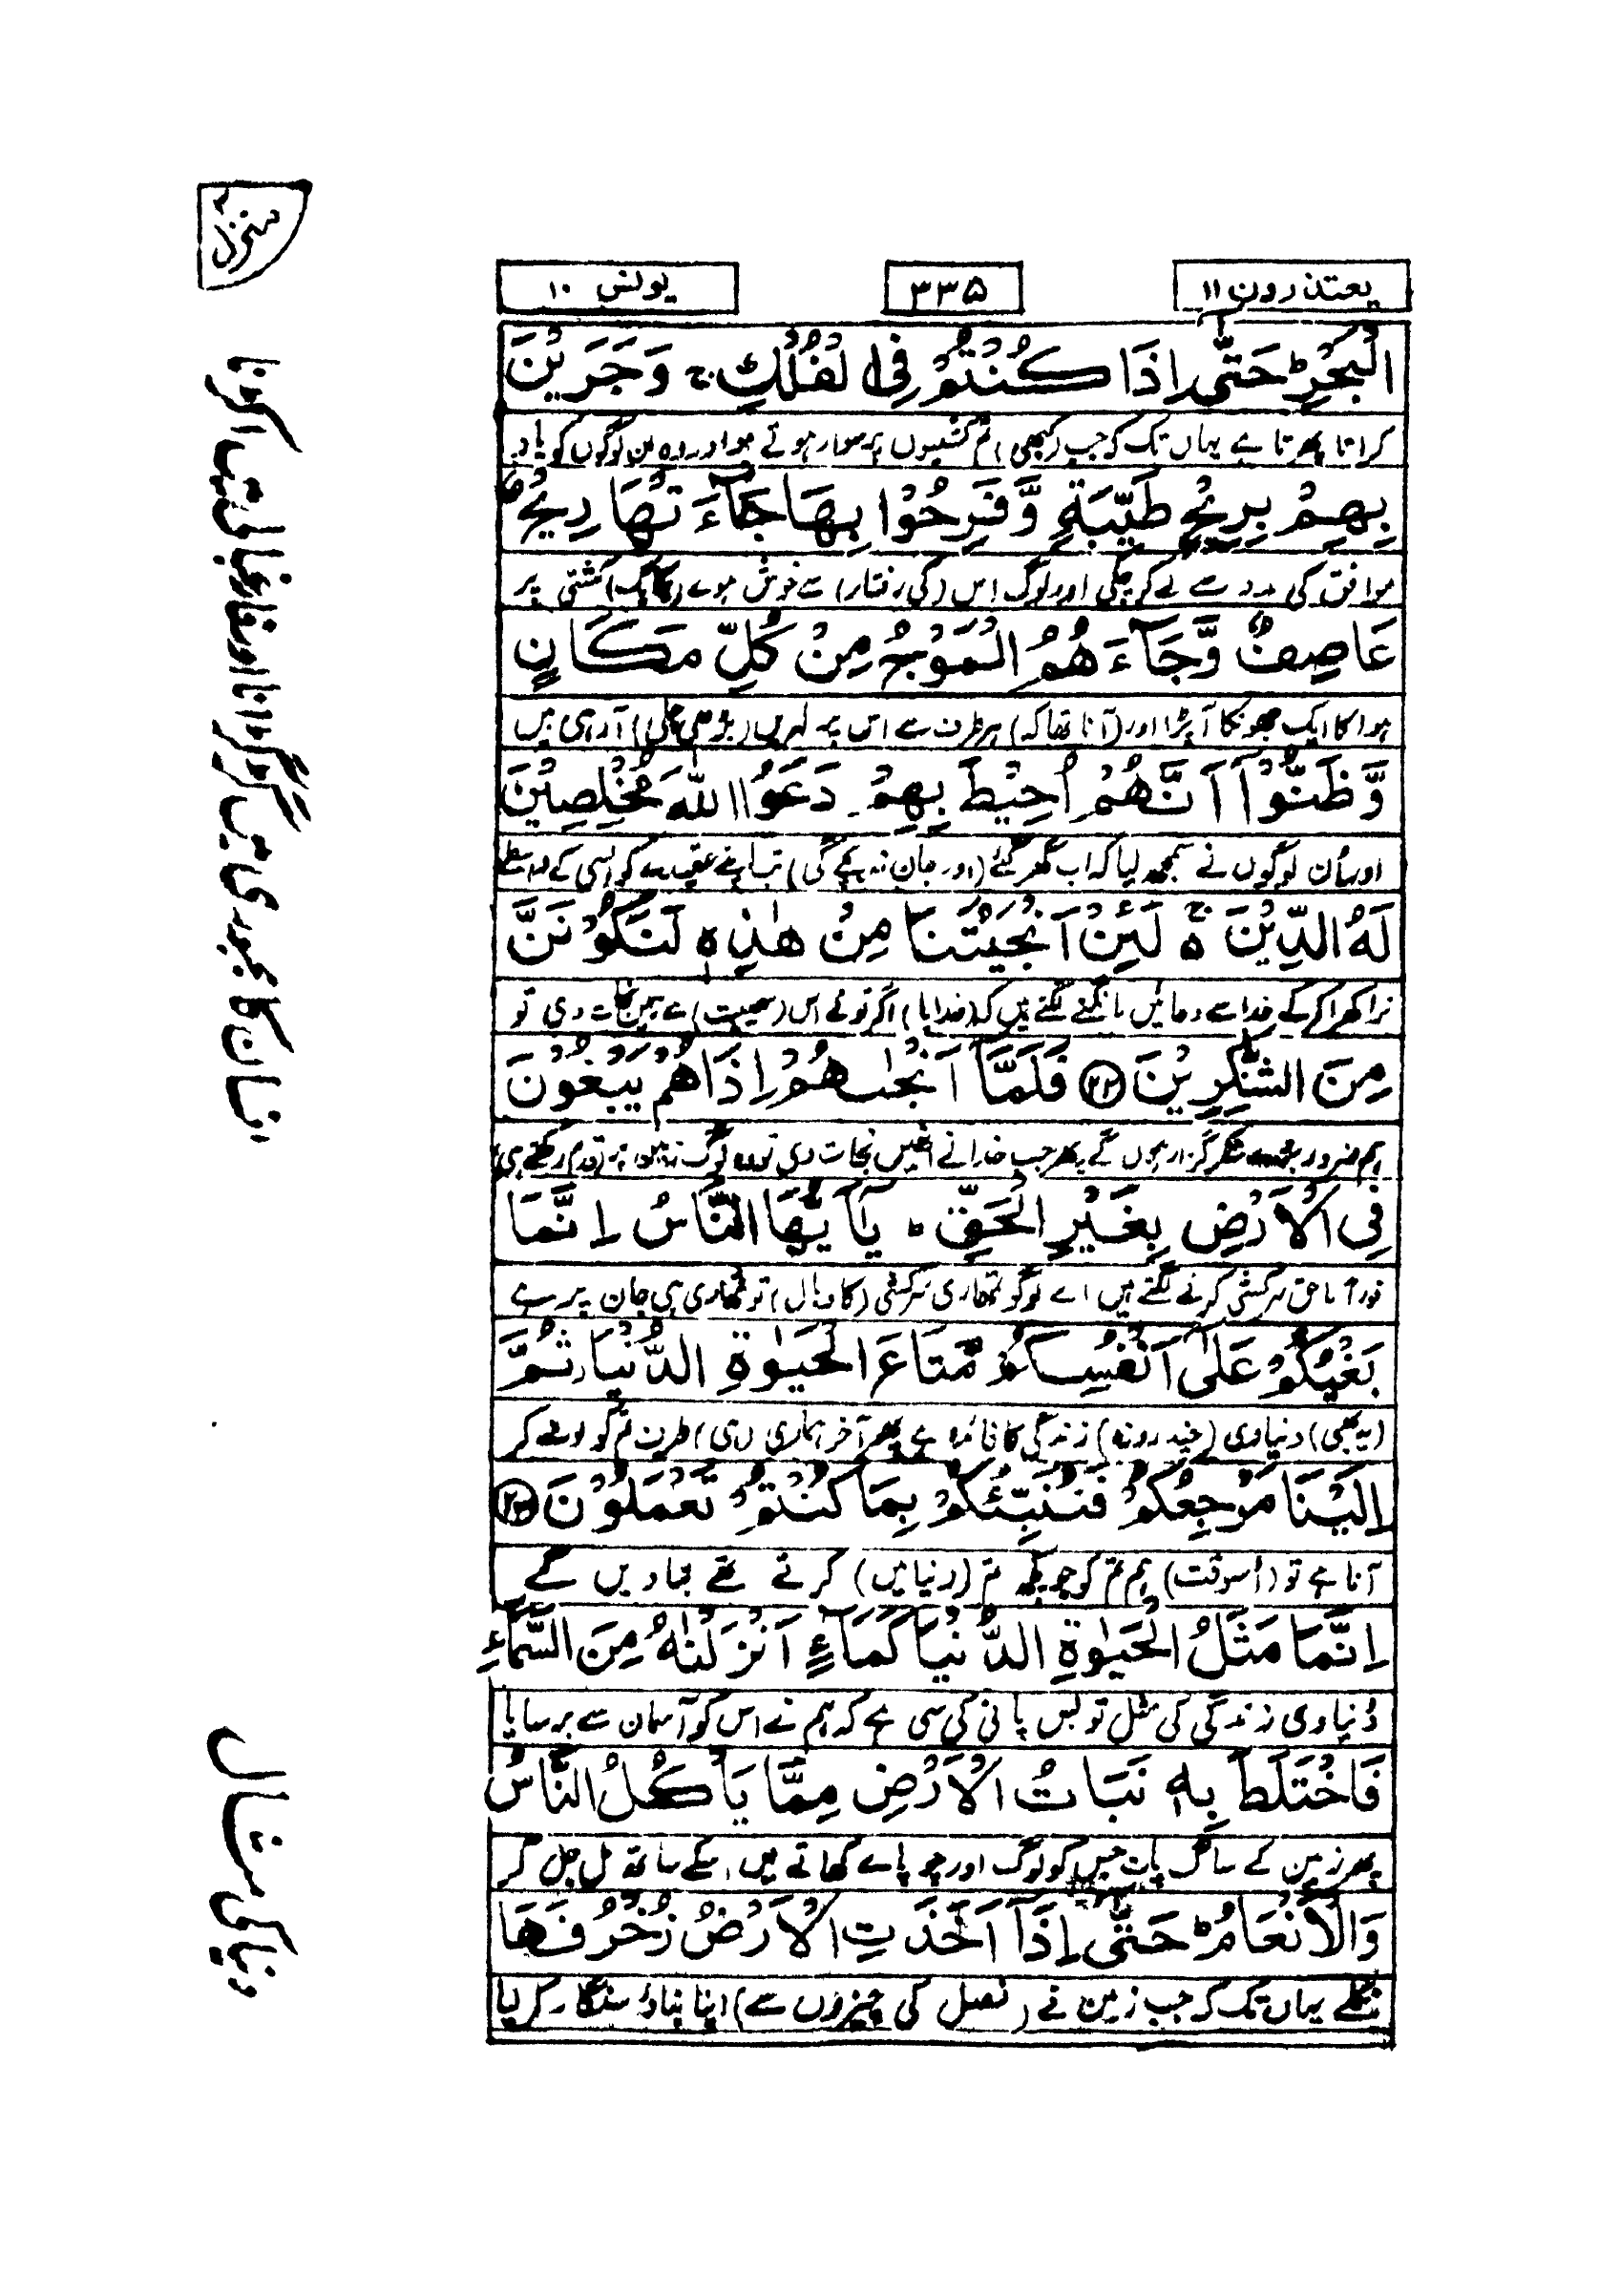 منزل ۳
یعتذرون ۱۱
۳۳۵
یونس ۱۰
الْبَحْرِ ؕ حَتّٰی اِذَا كُنْتُمْ فِی الْفُلْكِ ۚ وَ جَرَیْنَ
کراتا پھرتا ہے یہاں تک کہ جب (کبھی) تم کشتیوں پر سوار ہوتے ہو اور وہ ان لوگوں کو باد
بِهِمْ بِرِیْحٍ طَیِّبَةٍ وَّ فَرِحُوْا بِهَا جَآءَتْهَا رِیْحٌ
موافق کی مدد سے لے کر چلی اور لوگ اس (کی رفتار) سے خوش ہوے (یکایک) کشتی پر
عَاصِفٌ وَّ جَآءَهُمُ الْمَوْجُ مِنْ كُلِّ مَكَانٍ
ہوا کا ایک جھونکا آپڑا اور (آنا تھا کہ) ہر طرف سے اس پر لہریں (بڑھی چلی) آرہی ہیں
وَّ ظَنُّوْۤا اَنَّهُمْ اُحِیْطَ بِهِمْ ۙ دَعَوُا اللّٰهَ مُخْلِصِیْنَ
اور ان لوگوں نے سمجھ لیا کہ اب گھر گئے (اور جان نہ بچے گی) تب اپنے عقیدے کو اسی کے واسطے
لَهُ الدِّیْنَ ۚ۬ لَىِٕنْ اَنْجَیْتَنَا مِنْ هٰذِهٖ لَنَكُوْنَنَّ
نرا کھرا کر کے خدا سے دعائیں مانگنے لگتے ہیں کہ (خدایا) اگر تو نے اس (مصیبت) سے ہمیں نجات دی تو
مِنَ الشّٰكِرِیْنَ ۲۲ فَلَمَّاۤ اَنْجٰىهُمْ اِذَا هُمْ یَبْغُوْنَ
ہم ضرور بڑے شکر گزار ہوں گے پھر جب خدا نے انھیں نجات دی تو وہ لوگ زمین پر (قدم رکھتے ہی)
فِی الْاَرْضِ بِغَیْرِ الْحَقِّ ؕ یٰۤاَیُّهَا النَّاسُ اِنَّمَا
فوراً ناحق سرکشی کرنے لگتے ہیں اے لوگو تمھاری سرکشی (کا وبال) تو تمھاری ہی جان پر ہے
بَغْیُكُمْ عَلٰۤی اَنْفُسِكُمْ مَّتَاعَ الْحَیٰوةِ الدُّنْیَا ؗ ثُمَّ
(یہ بھی) دنیاوی (چند روزہ) زندگی کا فائدہ ہے پھر آخر ہماری (ہی) طرف تم کو لوٹ کر
اِلَیْنَا مَرْجِعُكُمْ فَنُنَبِّئُكُمْ بِمَا كُنْتُمْ تَعْمَلُوْنَ ۲۳
آنا ہے تو (اُسوقت) ہم تم کو جو کچھ تم (دنیا میں) کرتے تھے بتا دیں گے
اِنَّمَا مَثَلُ الْحَیٰوةِ الدُّنْیَا كَمَآءٍ اَنْزَلْنٰهُ مِنَ السَّمَآءِ
دُنیاوی زندگی کی مثل تو بس پانی کی سی ہے کہ ہم نے اس کو آسمان سے برسایا
فَاخْتَلَطَ بِهٖ نَبَاتُ الْاَرْضِ مِمَّا یَاْكُلُ النَّاسُ
پھر زمین کے ساگ پات جس کو لوگ اور چوپاے کھاتے ہیں اسکے ساتھ مل جل کر
وَ الْاَنْعَامُ ؕ حَتّٰۤی اِذَاۤ اَخَذَتِ الْاَرْضُ زُخْرُفَهَا
نکلے یہاں تک کہ جب زمین نے (فصل کی چیزوں سے) اپنا بناؤ سنگار کر لیا
انسان کا مجبوری میں گڑگڑانا اور فارغ البالی میں اکڑنا
دنیا کی مثال